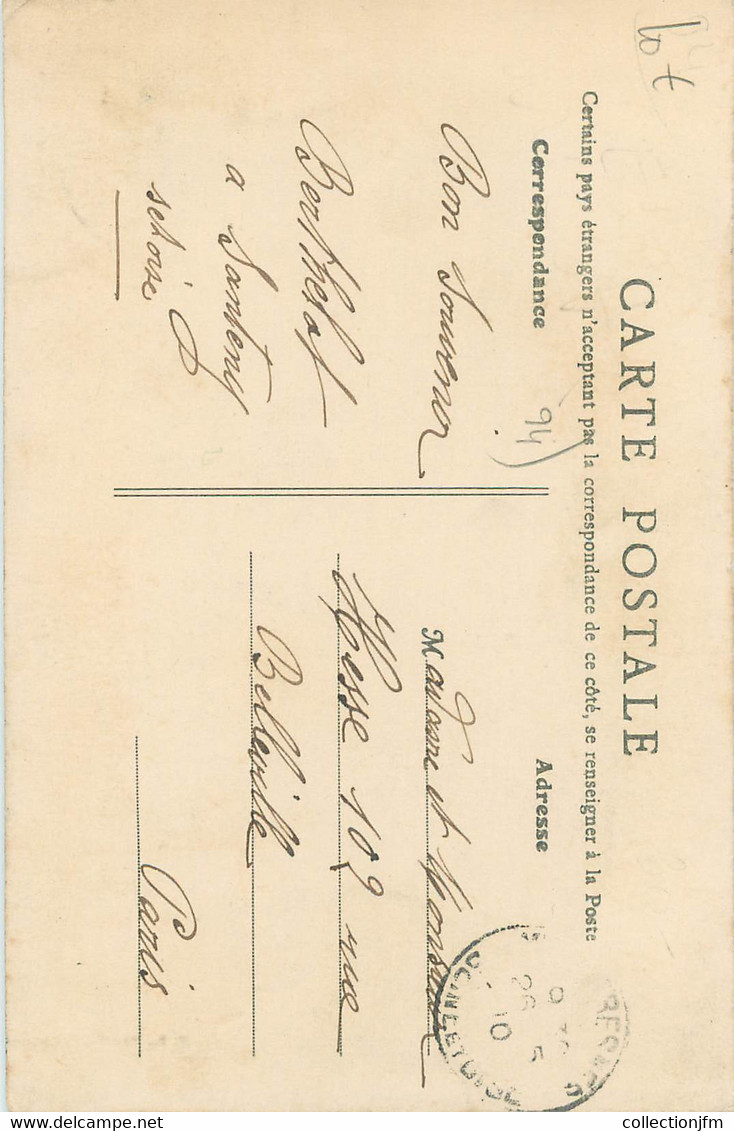 CARTE POSTALE
Certains pays étrangers n'acceptant pas la correspondance de ce côté, se renseigner à la Poste
Correspondance
Adresse
94
Bon Souvenir
Berthelot
a Santeny
setoise
Madame et Monsieur
Hesse 109 rue
Belleville
Paris
26 5
10
SEINE ET OISE
delcampe.net
collectionjfm